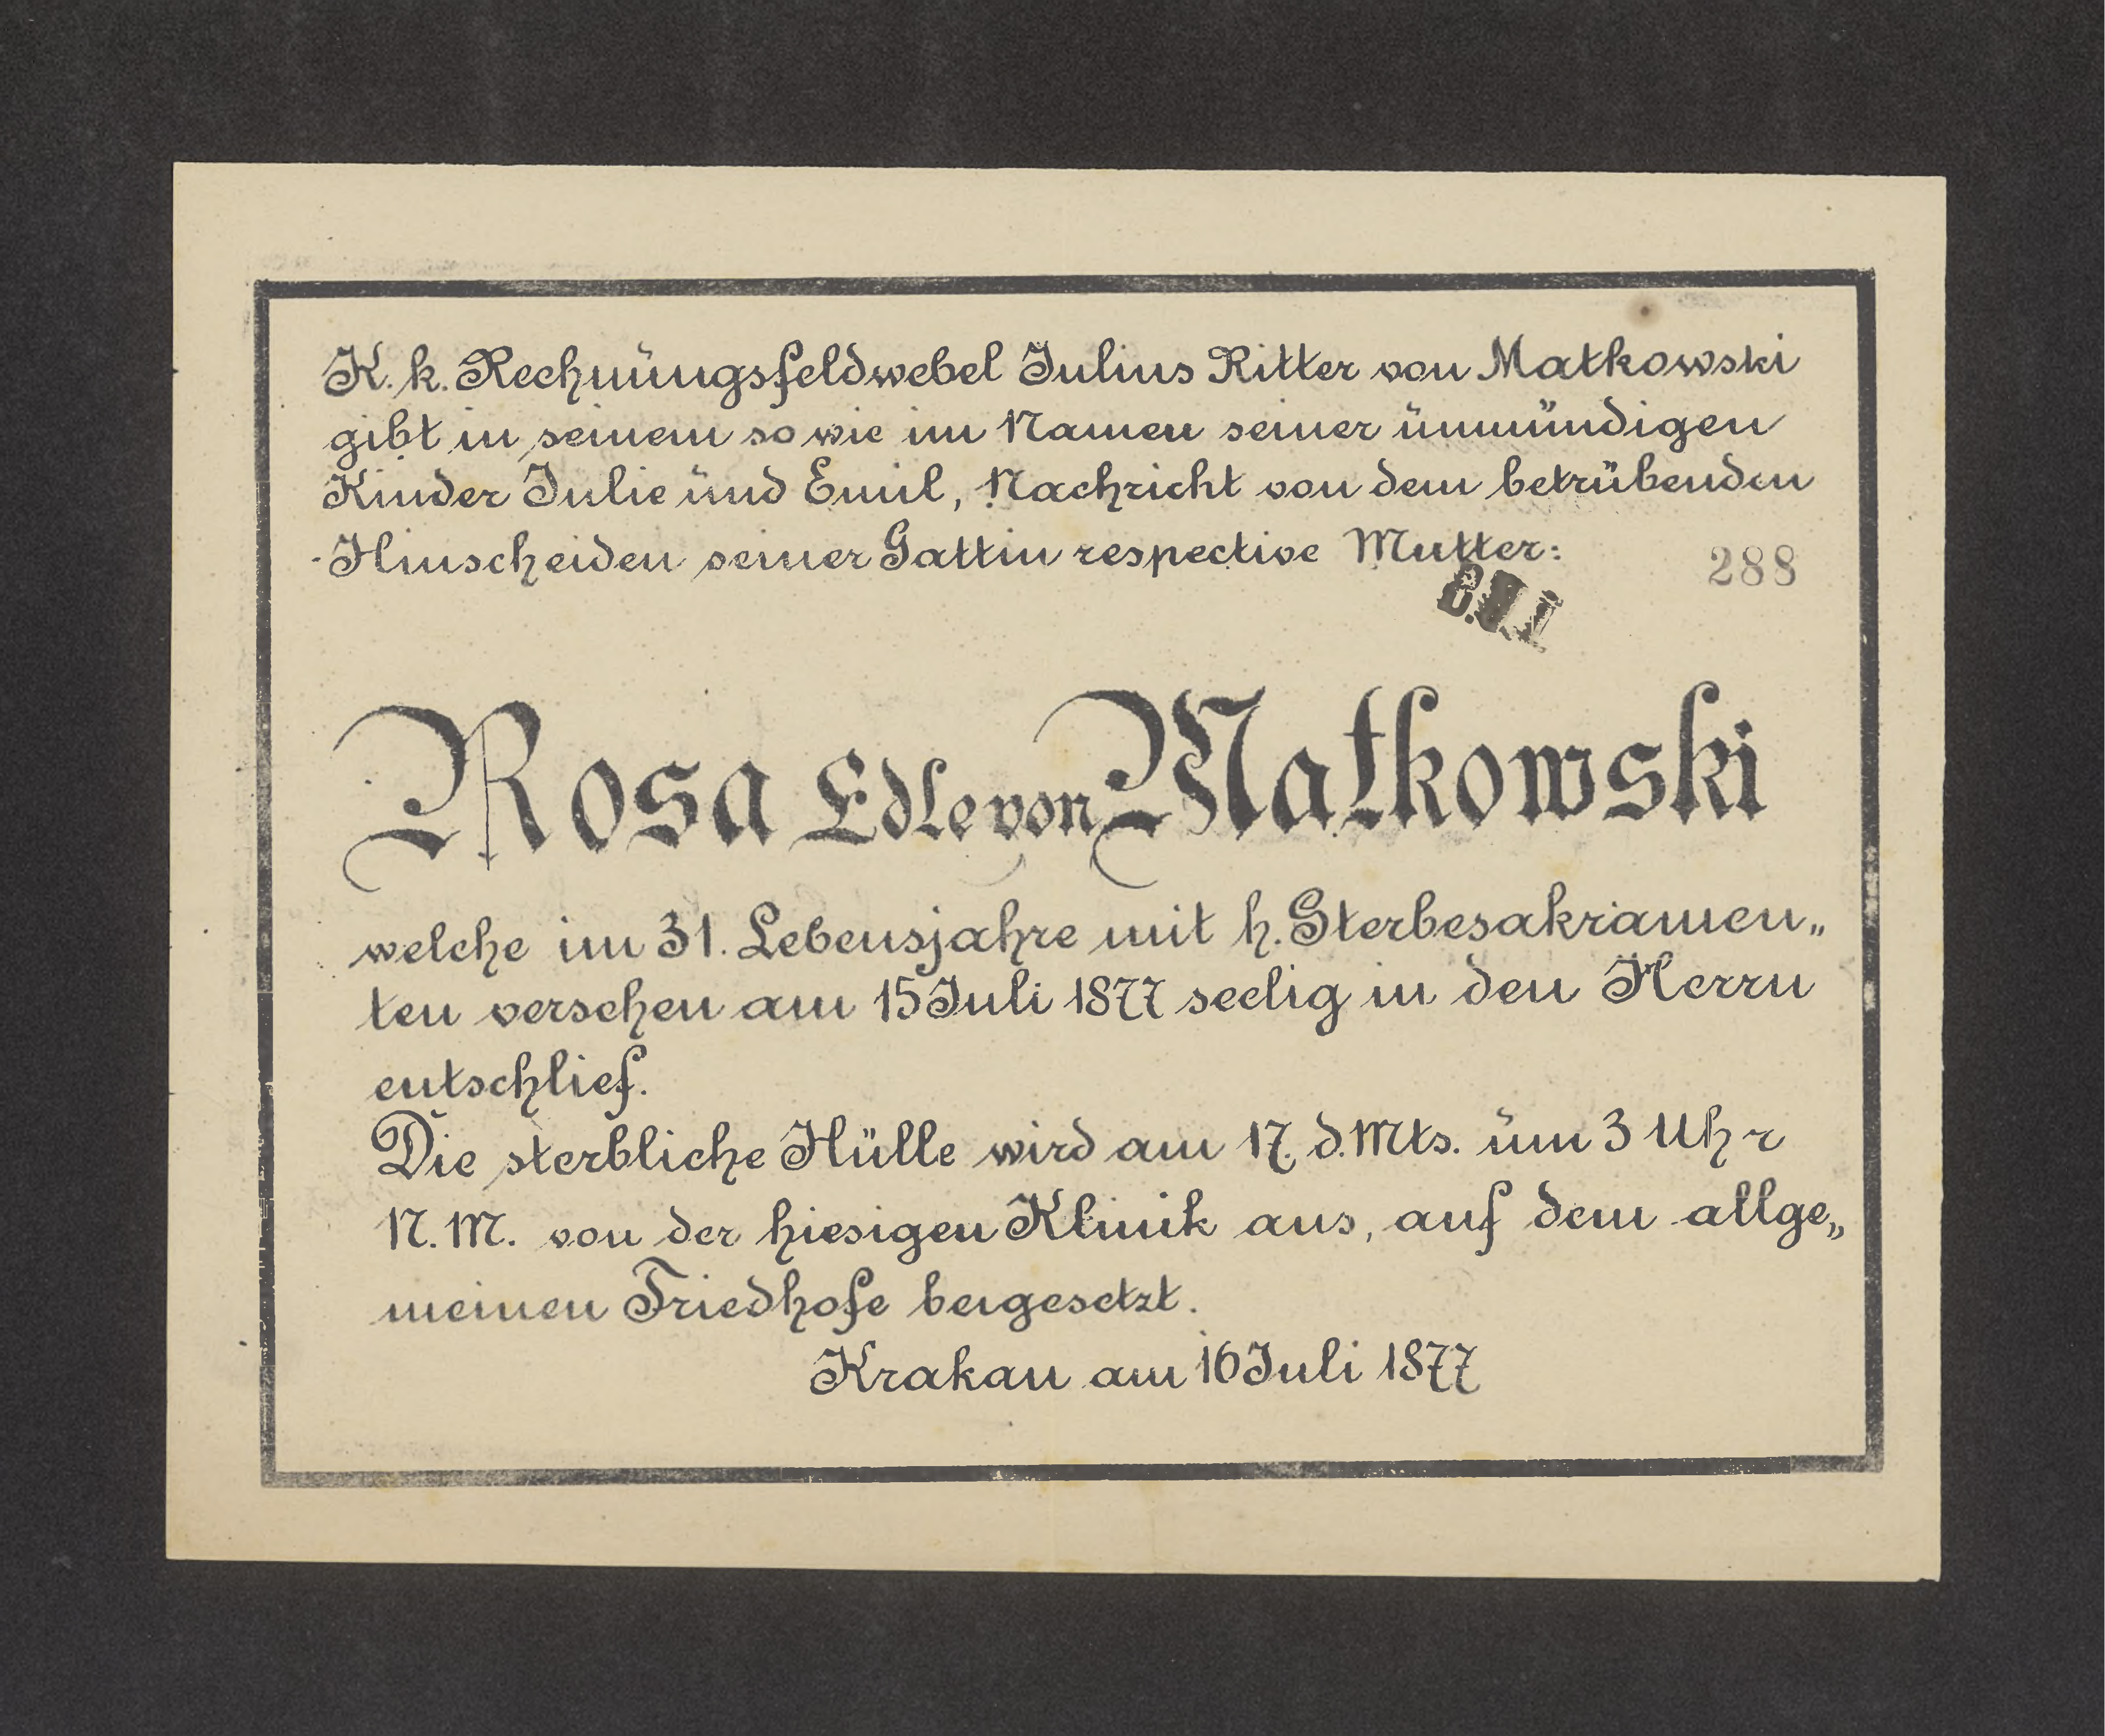 K. k. Rechnungsfeldwebel Julius Ritter von Matkowski
gibt in seinem so wie im Namen seiner unmündigen
Kinder Julie und Emil, Nachricht von dem betrübenden
Hinscheiden seiner Gattin respective Mutter:
288
B.U.J
Rosa Edle von Matkowski
welche im 31. Lebensjahre mit h. Sterbesakramen„
ten versehen am 15 Juli 1877 seelig in den Herrn
entschlief.
Die sterbliche Hülle wird am 17. d. Mts. um 3 Uhr
N. M. von der hiesigen Klinik aus, auf dem allge„
meinen Friedhofe beigesetzt.
Krakau am 16 Juli 1877